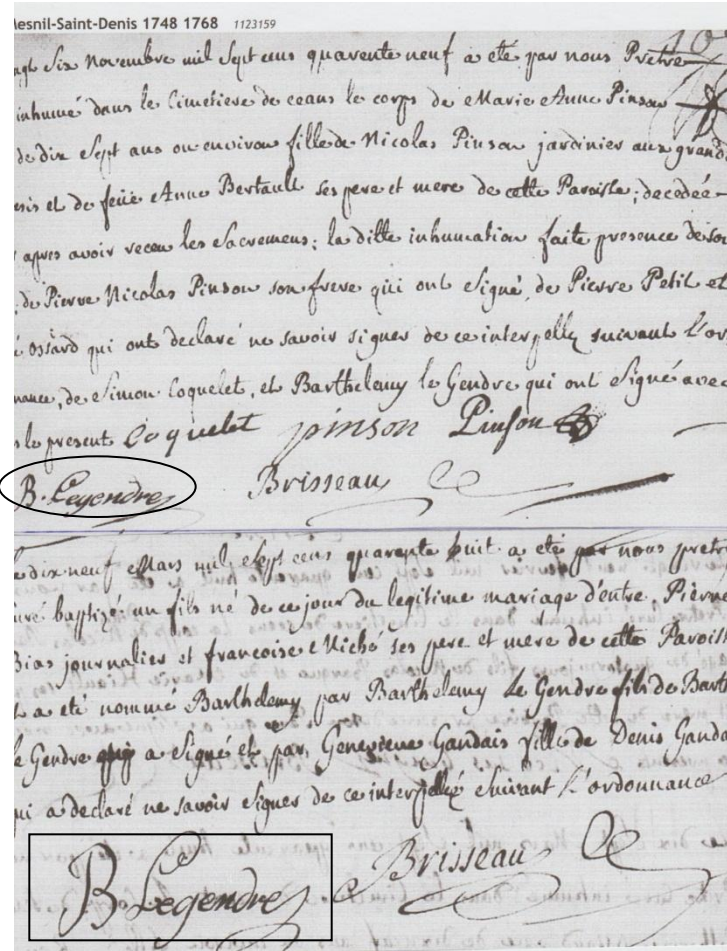 Mesnil-Saint-Denis 1748 1768 1123159
107
vingt Six Novembre mil Sept cens quarente neuf a eté par nous Pretre
inhumé dans le Cimetiere de ceans le corps de Marie Anne Pinson
de dix Sept ans ou environ fille de Nicolas Pinson jardinier aux grand
et de feüe Anne Bertault ses pere et mere de cette Paroisse; decedée
apres avoir receu les Sacremens; la ditte inhumation faite presence de son
de Pierre Nicolas Pinson son frere qui ont Signé, de Pierre Petit et
Ossard qui ont declaré ne savoir signer de ce interpellés suivant l'or
nance, de Simon Coquelet, et Barthelemy le Gendre qui ont Signé avec
le present. Coquelet pinson Pinson
B. Legendre Brisseau
dix neuf Mars mil Sept cens quarente huit a eté par nous pretre
curé baptizé un fils né de ce jour du legitime mariage d'entre Pierre
Bias journalier et francoise Miché ses pere et mere de cette Paroiss
a eté nommé Barthelemy par Barthelemy Le Gendre fils de Barth
le Gendre qui a Signé et par Genevieve Gandais fille de Denis Ganda
qui a declaré ne savoir Signer de ce interpellée Suivant L'ordonnance
B Legendre Brisseau